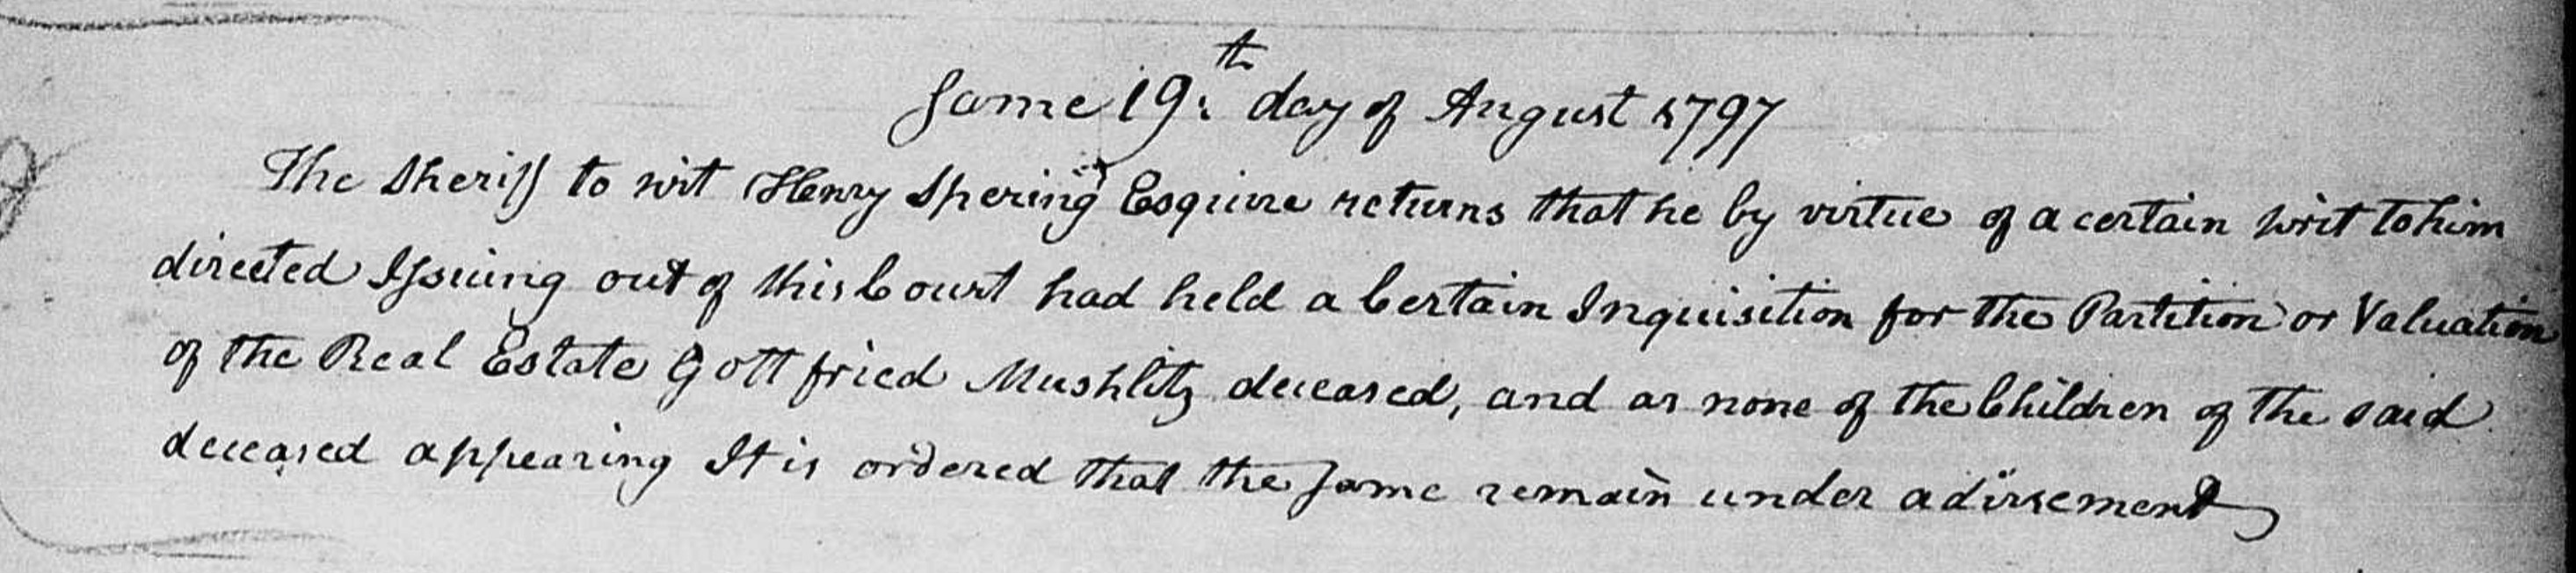 Same 19th day of August 1797
The Sheriff to wit Henry Spering Esquire returns that he by virtue of a certain writ to him
directed Issuing out of this Court had held a Certain Inquisition for the Partition or Valuation
of the Real Estate Gottfried Mushlitz deceased, and as none of the Children of the said
deceased appearing It is ordered that the same remain under advisement